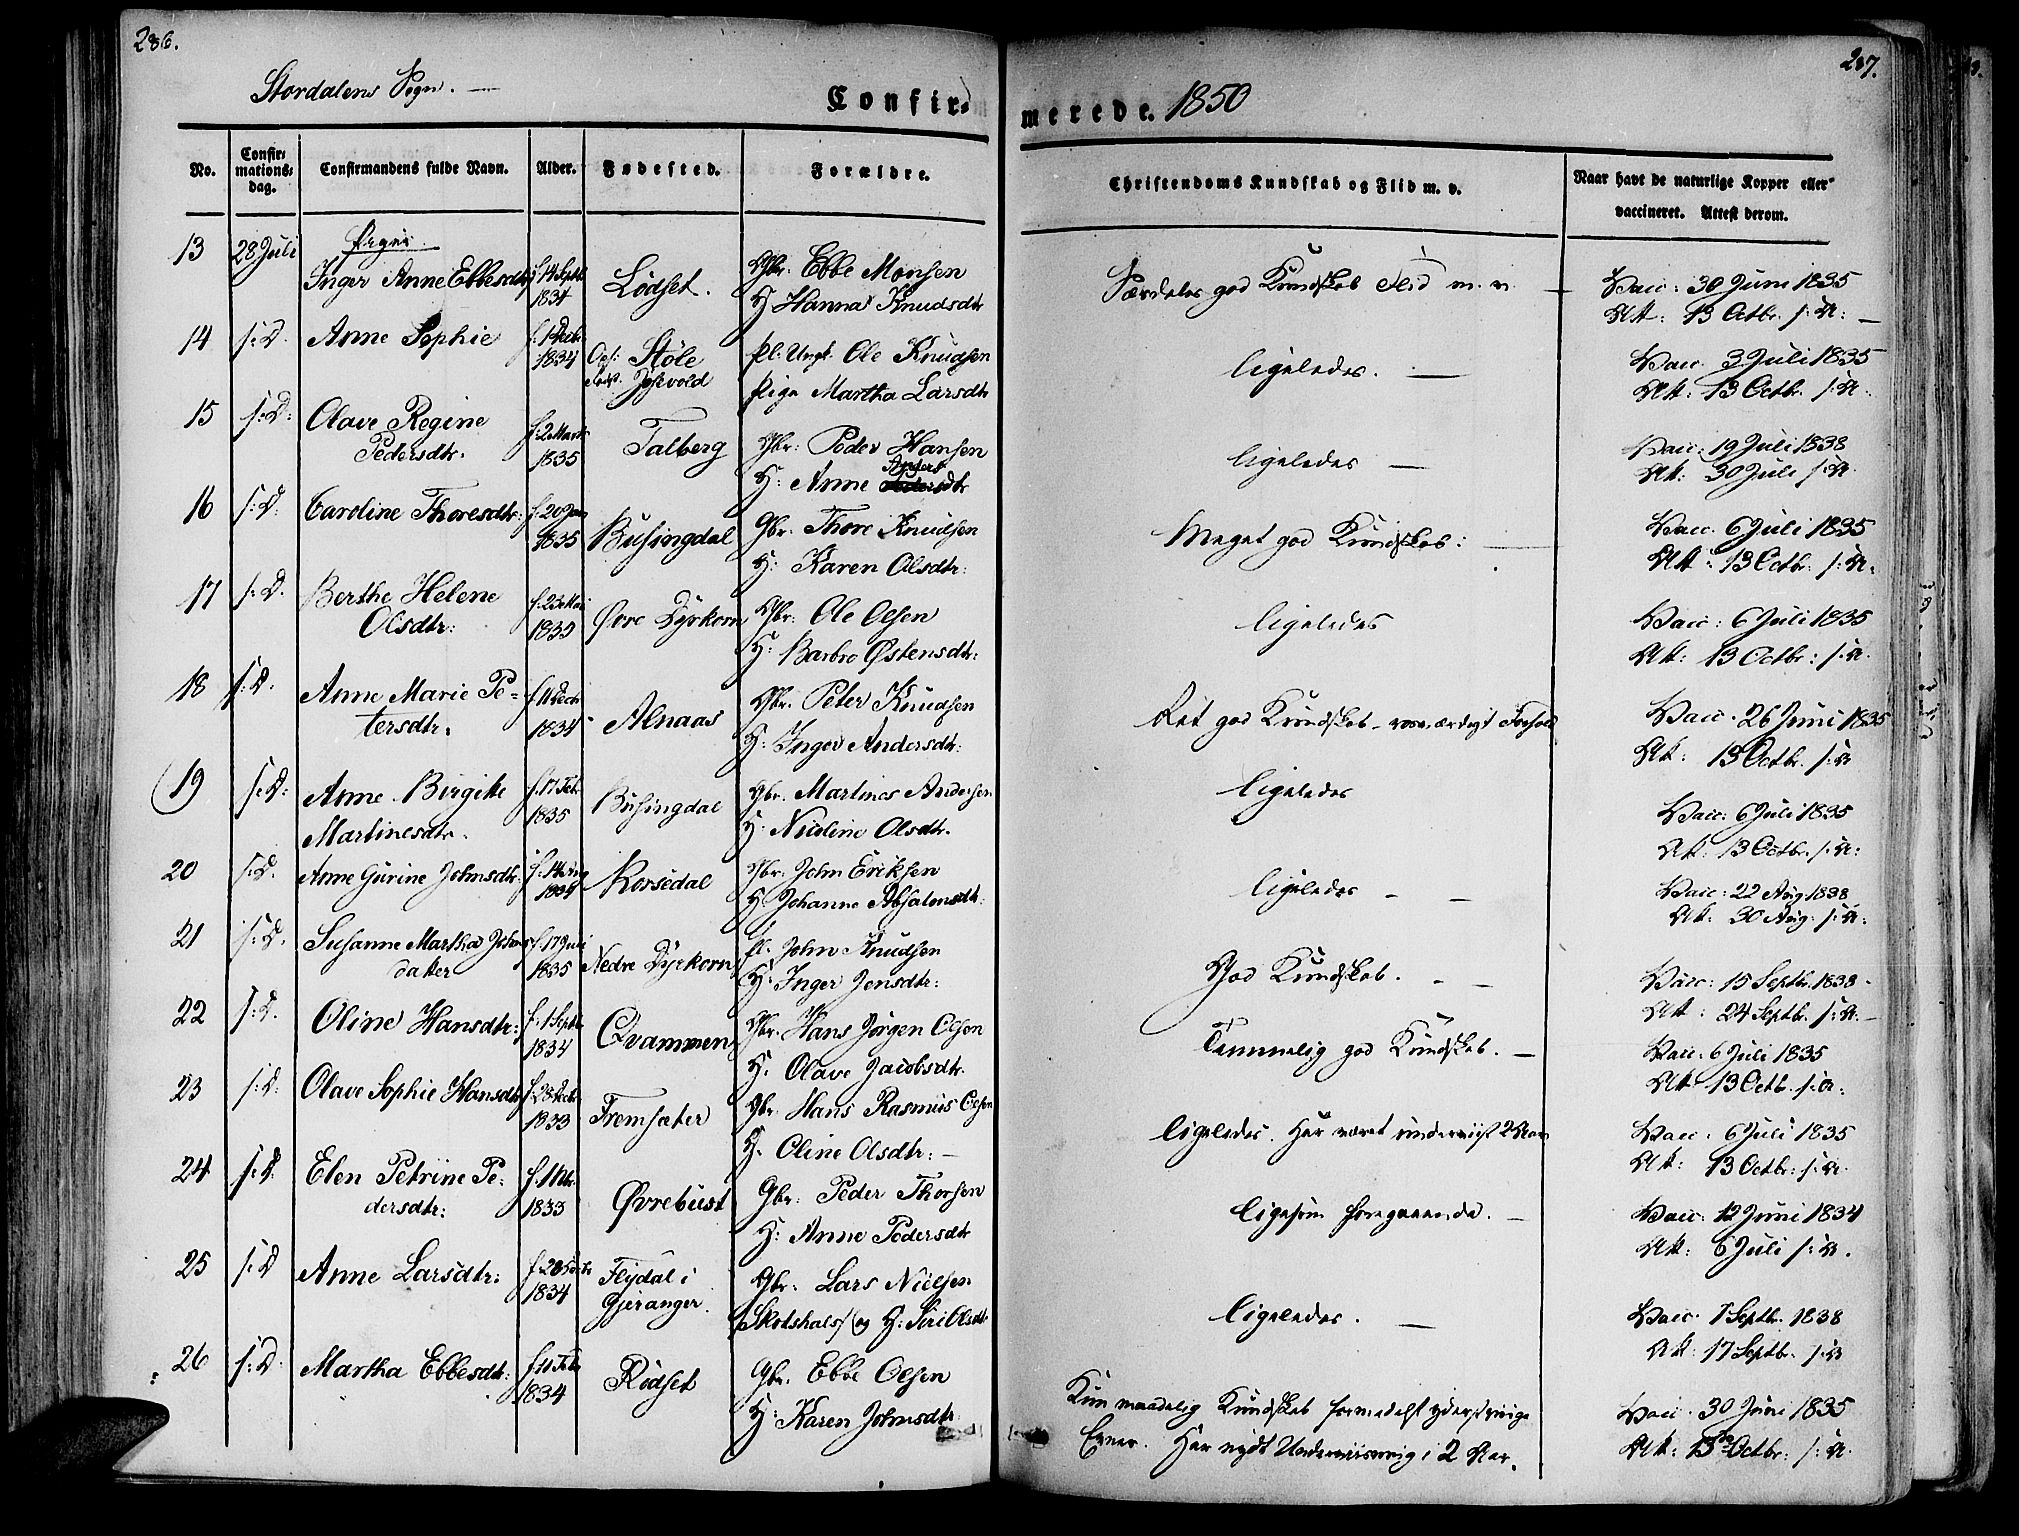 286.
Stordalens Sogn. —
Confir-
No.
Confir-
mations-
dag.
Confirmandens fulde Navn.
Alder.
Fødested.
Forældre.
13
28 Juli
Piger.
Inger Anne Ebbesdtr
f. 14 Septb
1834
Lødset.
Gbr. Ebbe Monsen
H. Hanna Knudsdtr
14
s: D.
Anne Sophie
1834
Støle
Ole Knudsen
Pige Martha Larsdtr
15
s: D:
Olave Regine
Pedersdtr.
f. 2 Marts
1835
Talberg
Gbr: Peder Hansen
H: Anne
16
s: D:
Caroline Thoresdtr:
f. 20 Jan
1835
Busingdal
Gbr. Thore Knudsen
H: Karen Olsdtr:
17
s: D.
Berthe Helene
Olsdtr:
f. 23 Mai
1835
Øvre Dyrkorn
Gbr: Ole Olsen
H: Barbro Østensdtr:
18
s: D.
Anne Marie Pe-
tersdtr.
f. 11 Decb
1834
Alnaas
Gbr. Peter Knudsen
H: Inger Andersdtr:
19
s: D:
Anne Birgitte
Martinesdtr.
f. 17 Feb
1835
Busingdal
Gbr. Martines Andersen
H: Nicoline Olsdtr.
20
s: D.
Anne Gurine Johnsdtr:
f. 14 Aug
1834
Korsedal
Gbr. John Eriksen
H. Johanne Absalonsdtr.
21
s: D.
Susanne Martha Johns
datter
f. 17 Juli
1835
Nedre Dyrkorn
Pl. John Knudsen
H: Inger Jonsdtr:
22
s: D.
Oline Hansdtr:
f. 1 Septb
1834
Qvammen
Gbr. Hans Jørgen Olsen
H. Olave Jacobsdtr.
23
s: D:
Olave Sophie Hansdtr
f. 28 Decb
1833
Fremsæter
Gbr. Hans Rasmus Olsen
H. Oline Olsdtr: —
24
s: D
Elen Petrine Pe-
dersdtr:
1833
Øvrebust
Gbr: Peder Thorsen
H: Anne Pedersdtr
25
s: D
Anne Larsdtr:
1834
Flydal i
Gjeranger.
Gbr: Lars Nielsen
(Skotshals) og H: Siri Olsdtr
26
s: D.
Martha Ebbesdtr:
f. 11 Feb
1834
Rødset
Gbr. Ebbe Olsen
H: Karen Johnsdtr.
287.
merede. 1850
Christendoms Kundskab og Flid m. v.
Naar havt de naturlige Kopper eller
vaccineret. Attest derom.
Særdeles god Kundskab Flid m. v. —
Vacc: 30 Juni 1835
Att: 13 Octbr. s: A: —
ligeledes. —
Vacc. 3 Juli 1835
Att: 13 Octbr. s: A.
ligeledes —
Vacc: 19 Juli 1838
Att: 30 Juli s: A.
Meget god Kundskab: —
Vacc. 6 Juli 1835
Att: 13 Octbr: s: A.
ligeledes
Vacc: 6 Juli 1835
Att: 13 Octbr: s: A.
Ret god Kundskab - roesværdigt Forhold
Vacc. 26 Juni 1835
Att: 13 Octbr. s: A
ligeledes
Vacc: 6 Juli 1835
Att: 13 Octbr. s: A:
ligeledes - -
Vacc: 22 Aug 1838
Att: 30 Aug. s: A:
God Kundskab. - -
Vacc: 15 Septbr. 1838.
Att: 24 Septbr. s: A. —
Temmelig god Kundskab. —
Vacc: 6 Juli 1835
Att: 13 Octb. s: A:
ligeledes. Har været underviist 2 Aar
Vacc. 6 Juli 1835
Att: 13 Octbr: s: A.
ligesom foregaaende. —
Vacc: 12 Juni 1834
Att: 6 Juli s: A.
ligeledes. —
Vacc: 1 Septbr. 1838
Att: 17 Septbr. s: A
Kun maadelig Kundskab formedelst yderst ringe
Evner. Har nydt Underviisning i 2 Aar.
Vacc. 30 Juni 1835
Att: 13 Octbr: s: A.